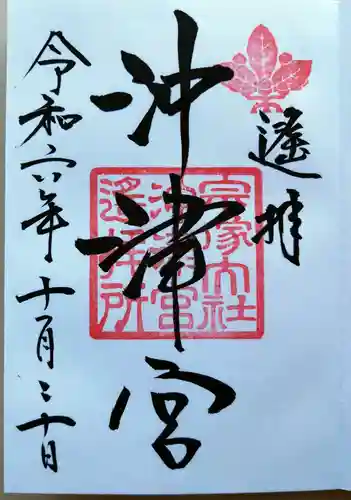 遥拝
沖津宮
宗像大社
沖津宮
遙拝所
令和六年十一月三十日